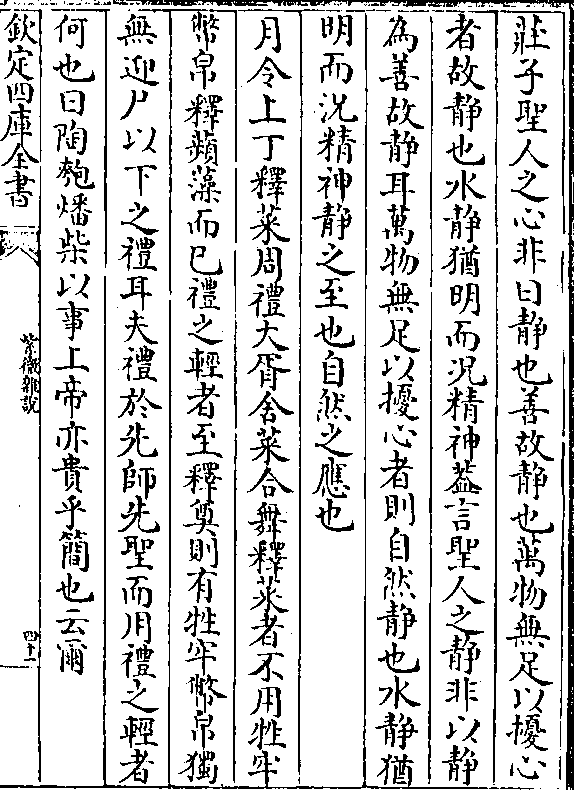 莊子聖人之心非曰静也善故静也萬物無足以擾心
者故静也水静猶明而况精神葢言聖人之静非以静
為善故静耳萬物無足以擾心者則自然静也水静猶
明而況精神静之至也自然之應也
月令上丁釋菜周禮大胥舍菜合舞釋菜者不用牲牢
幣帛釋蘋藻而已禮之輕者至釋奠則有牲牢幣帛獨
無迎尸以下之禮耳夫禮於先師先聖而用禮之輕者
何也曰陶匏燔柴以事上帝亦貴乎簡也云爾
欽定四庫全書
紫微雜說
四十二